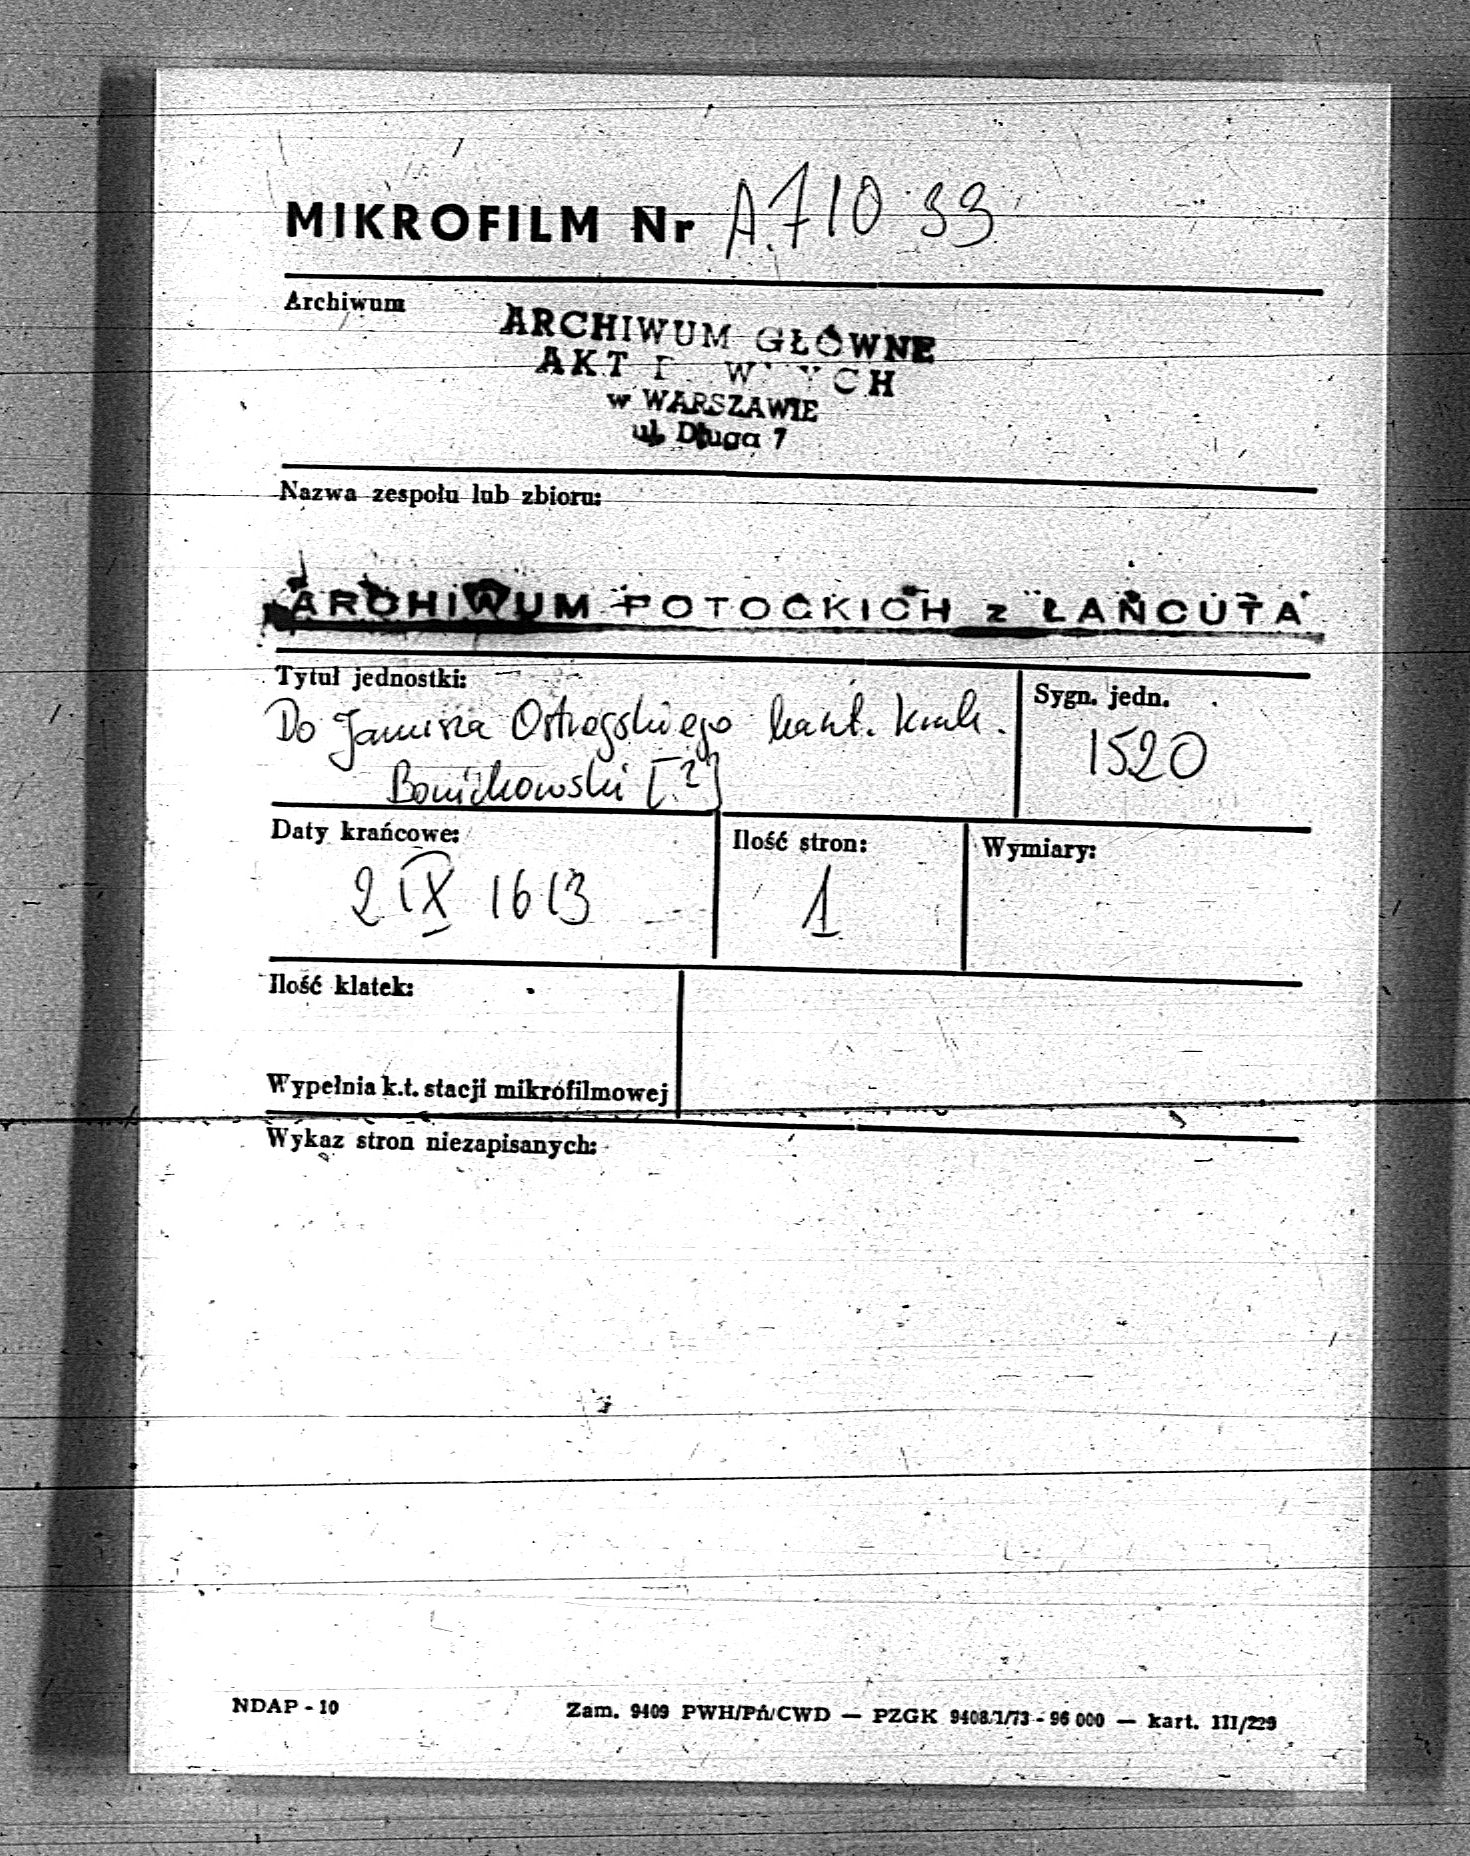 MIKROFILM Nr A.71033
Archiwum
ARCHIWUM GŁÓWNE
AKT
w WARSZAWIE
ul. Długa 7
Nazwa zespołu lub zbioru:
ARCHIWUM POTOCKICH z ŁAŃCUTA
Tytuł jednostki:
Do Janusza Ostrogskiego kaszt. krak.
[?]
Sygn. jedn.
1520
Daty krańcowe:
2 IX 1613
Ilość stron:
1
Wymiary:
Ilość klatek:
Wypełnia k.t. stacji mikrofilmowej
Wykaz stron niezapisanych:
NDAP - 10
Zam. 9409 PWH/PA/CWD — PZGK 9408/1/73 - 96 000 — kart. III/229